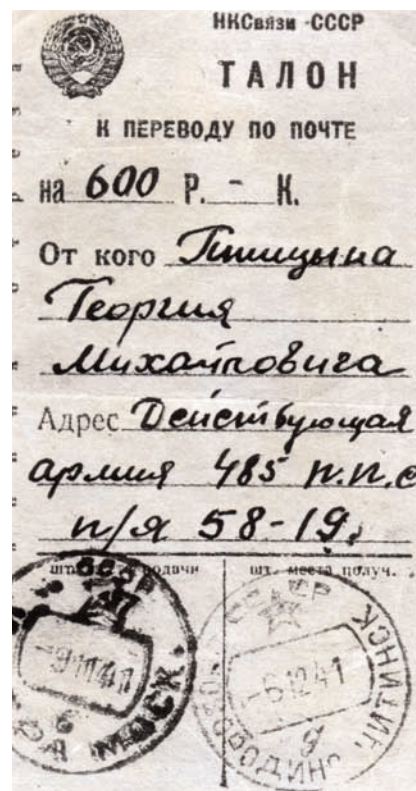 НКСвязи СССР
ТАЛОН
К ПЕРЕВОДУ ПО ПОЧТЕ
на 600 Р. - К.
От кого Птицына
Георгия
Михайловича
Адрес Действующая
армия 485 п.п.с
п/я 58-19.
подачи шт. места получ.
СССР СССР
-9 11 41 -6 12 41
6 g
МОСК.